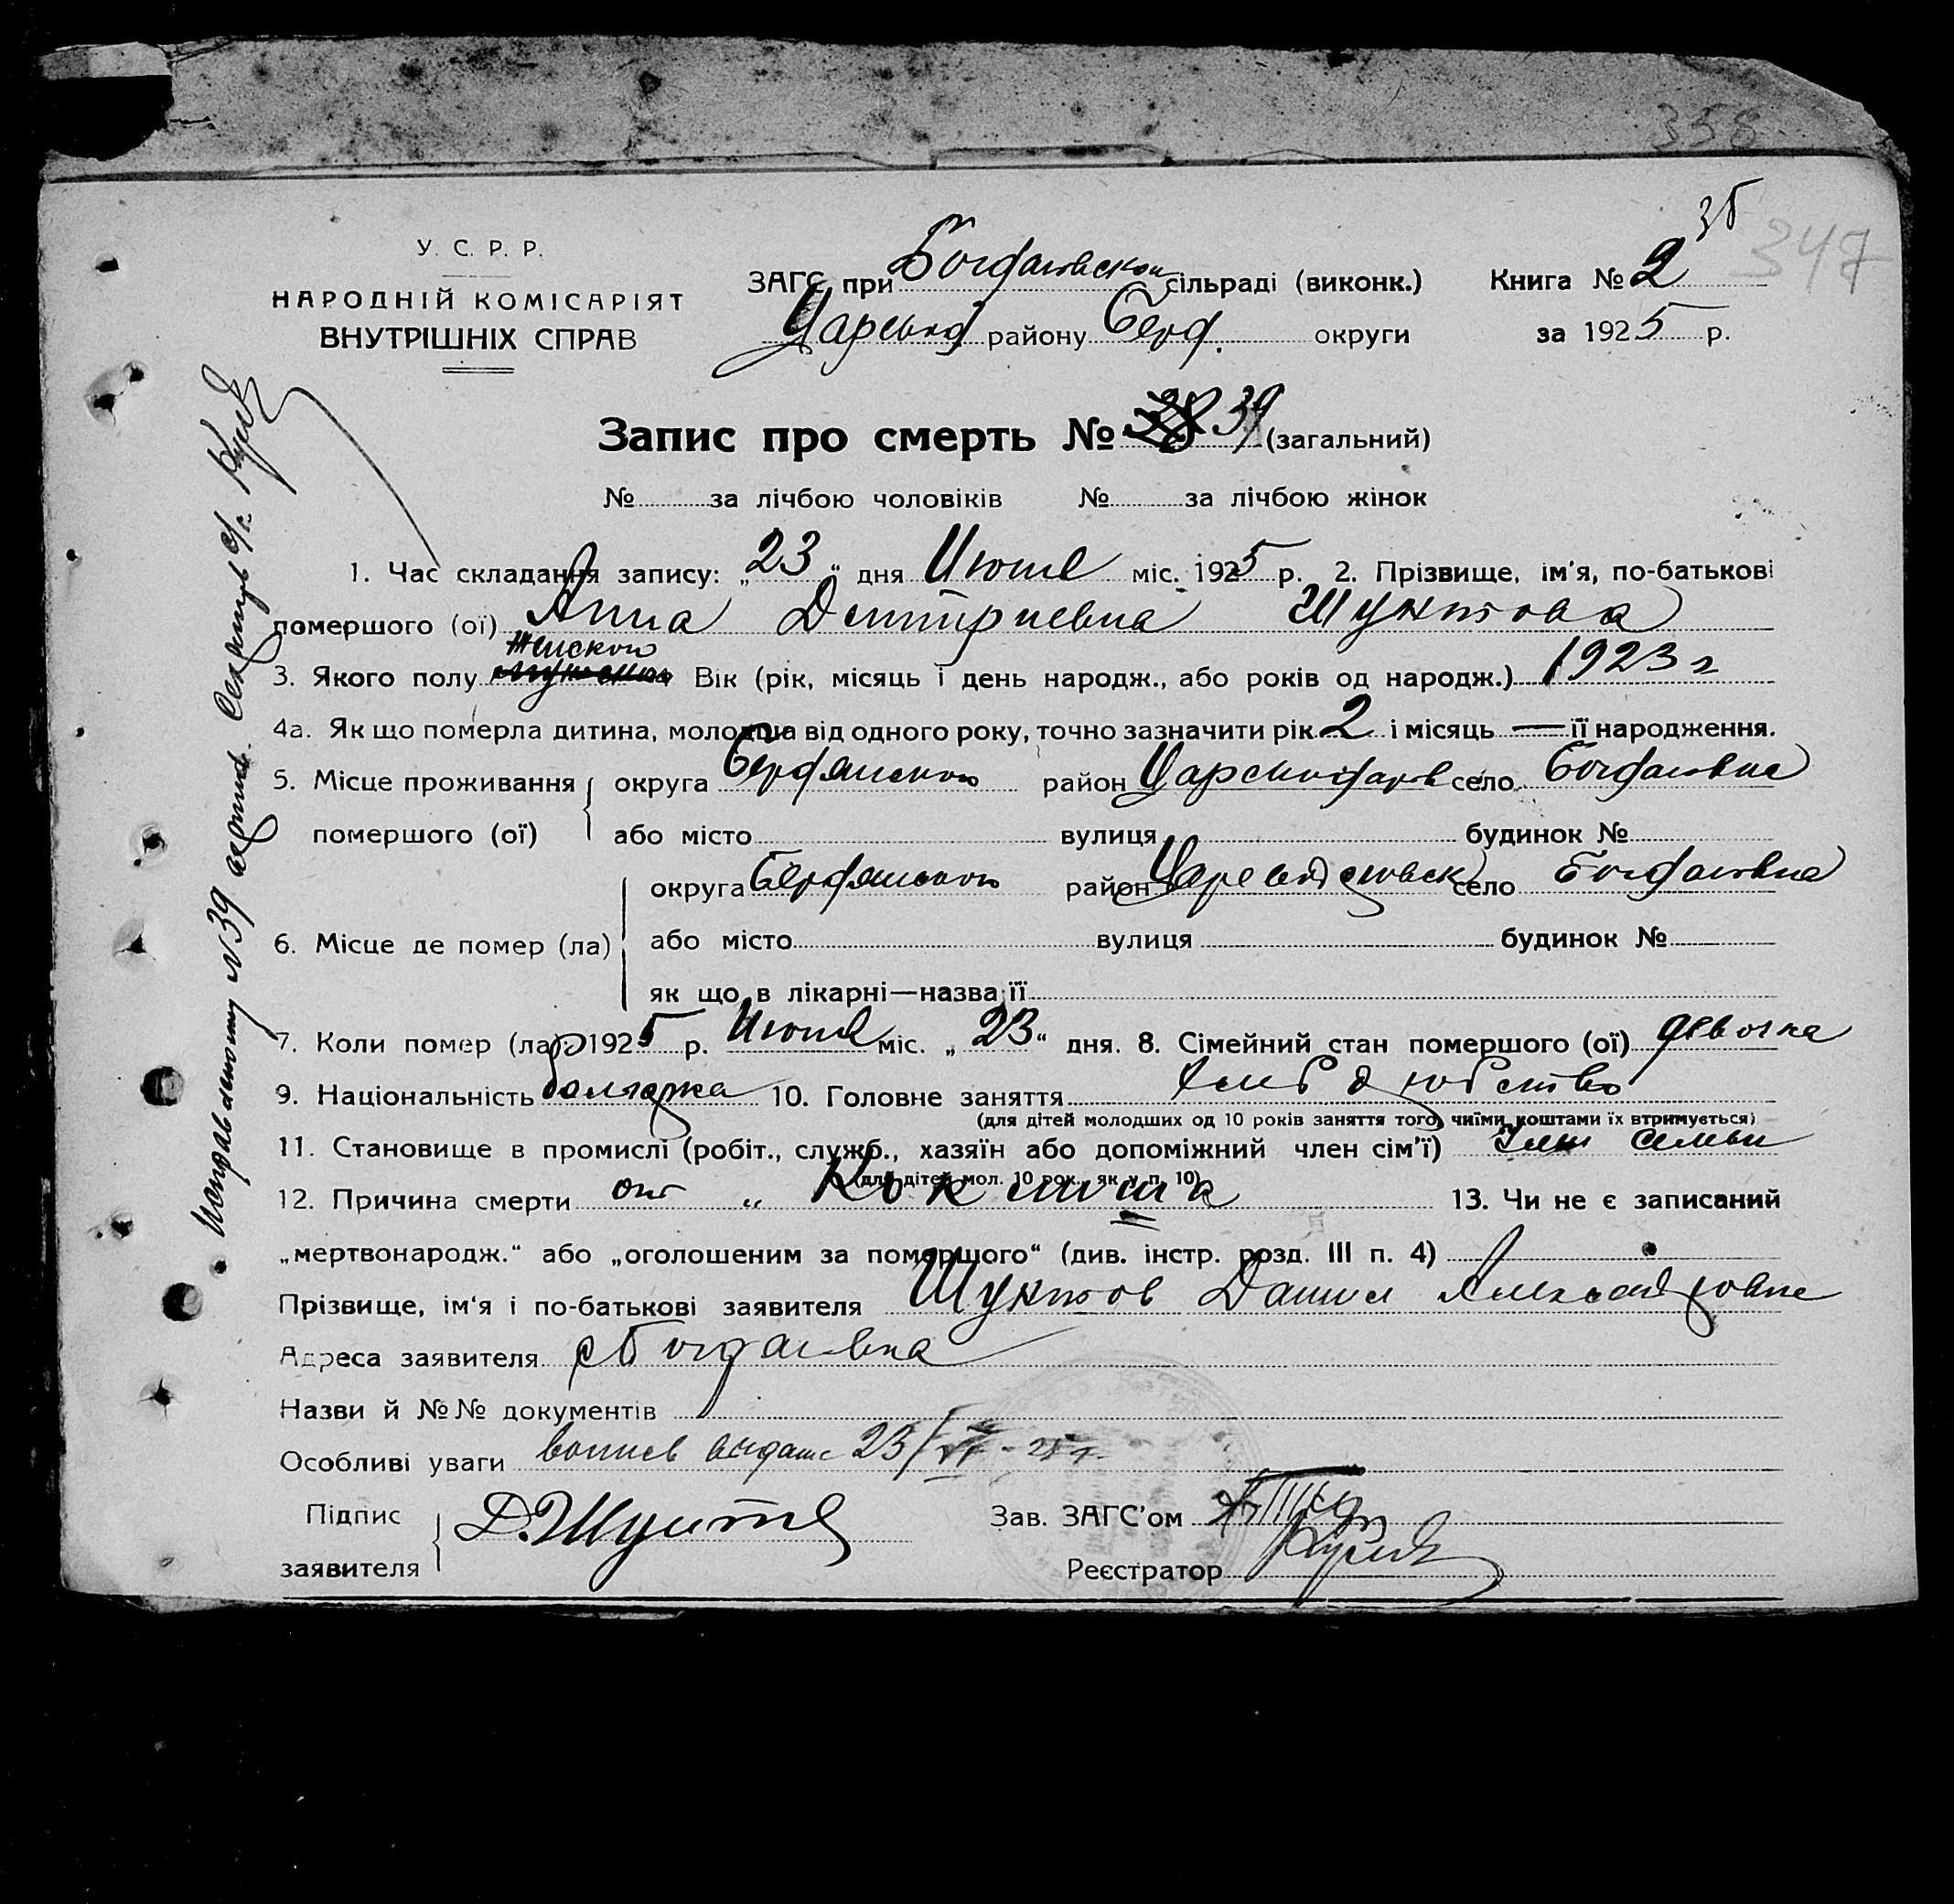 358
35
347
У. С. Р. Р.
НАРОДНІЙ КОМІСАРІЯТ
ВНУТРІШНІХ СПРАВ
ЗАГС при Богдановском сільраді (виконк.) Книга № 2
Царевод району Берд. округи за 1925 р.
Запис про смерть № 39 (загальний)
№ за лічбою чоловіків № за лічбою жінок
1. Час складання запису: „23“ дня Июня міс. 1925 р. 2. Прізвище, ім'я, по-батькові
помершого (ої) Анна Дмитриевна
Женской
3. Якого полу Вік (рік, місяць і день народж., або років од народж.) 1923 г
4а. Як що померла дитина, молодша від одного року, точно зазначити рік 2 і місяць — її народження.
5. Місце проживання округа Бердянского район село Богдановка
помершого (ої) або місто вулиця будинок №
округа Бердянского район село Богдановка
6. Місце де помер (ла) або місто вулиця будинок №
як що в лікарні—назва її
7. Коли помер (ла) 1925 р. Июня міс. „23“ дня. 8. Сімейний стан помершого (ої) девочка
9. Національність болгарка 10. Головне заняття
(для дітей молодших од 10 років заняття того, чиїми коштами їх втримується)
11. Становище в промислі (робіт., служб., хазяїн або допоміжний член сім'ї) член семьи
(для дітей мол. 10 рок., як у п. 10)
12. Причина смерти от „ Коклюша 13. Чи не є записаний
„мертвонародж.“ або „оголошеним за помершого“ (див. інстр. розд. III п. 4)
Прізвище, ім'я і по-батькові заявителя Данил
Адреса заявителя с Богдановка
Назви й №№ документів
Особливі уваги 23/VI - 25 г.
Підпис
заявителя
Зав. ЗАГС'ом
Реєстратор
Исправленному №39 Секретарь с/с.